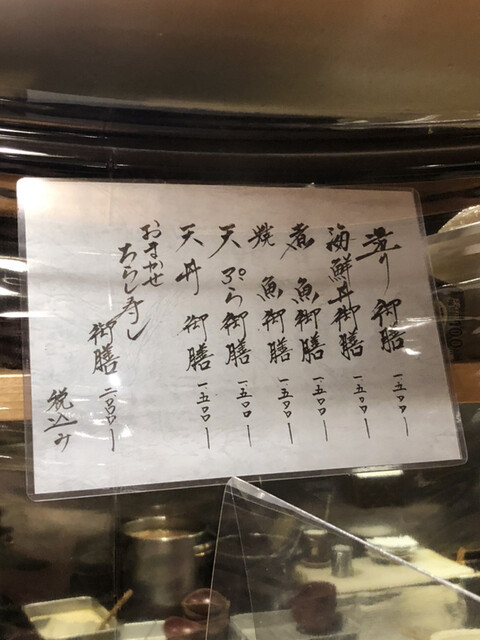 造り御膳 一五〇〇ー
海鮮丼御膳 一五〇〇ー
煮魚御膳 一五〇〇ー
焼魚御膳 一五〇〇ー
天ぷら御膳 一五〇〇ー
天丼御膳 一五〇〇ー
おまかせ
ちらし寿し
御膳 二〇〇〇ー
税込み